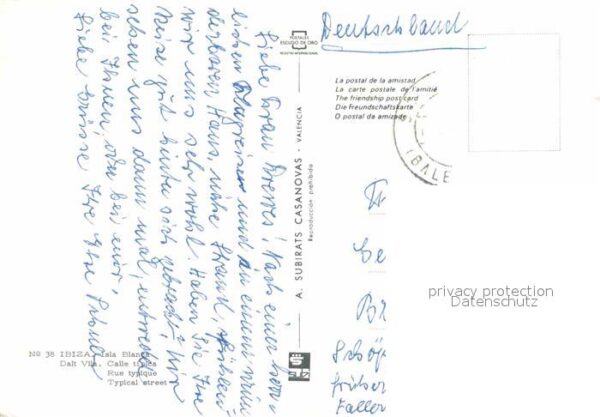 Deutschland
POSTALES
ESCUDO DE ORO
REGISTRO INTERNACIONAL
La postal de la amistad
La carte postale de l'amitié
The friendship post card
Die Freundschaftskarte
O postal da amizade
(BALE
Liebe Frau Drewes! Nach einer herr-
lichen Flugreise und in einem wun-
derbaren Haus, nähe Strand, fühlen
wir uns sehr wohl. Haben Sie Ihre
Reise gut hinter sich gebracht? Wir
sehen uns dann mal, entweder
bei Ihnen, oder bei uns!
Liebe Grüsse Ihre
A. SUBIRATS CASANOVAS - VALENCIA
Reproducción prohibida
Fr
Be
Br
früher
Faller
privacy protection
Datenschutz
Nº 38 IBIZA. Isla Blanca
Dalt Vila. Calle típica
Rue typique
Typical street